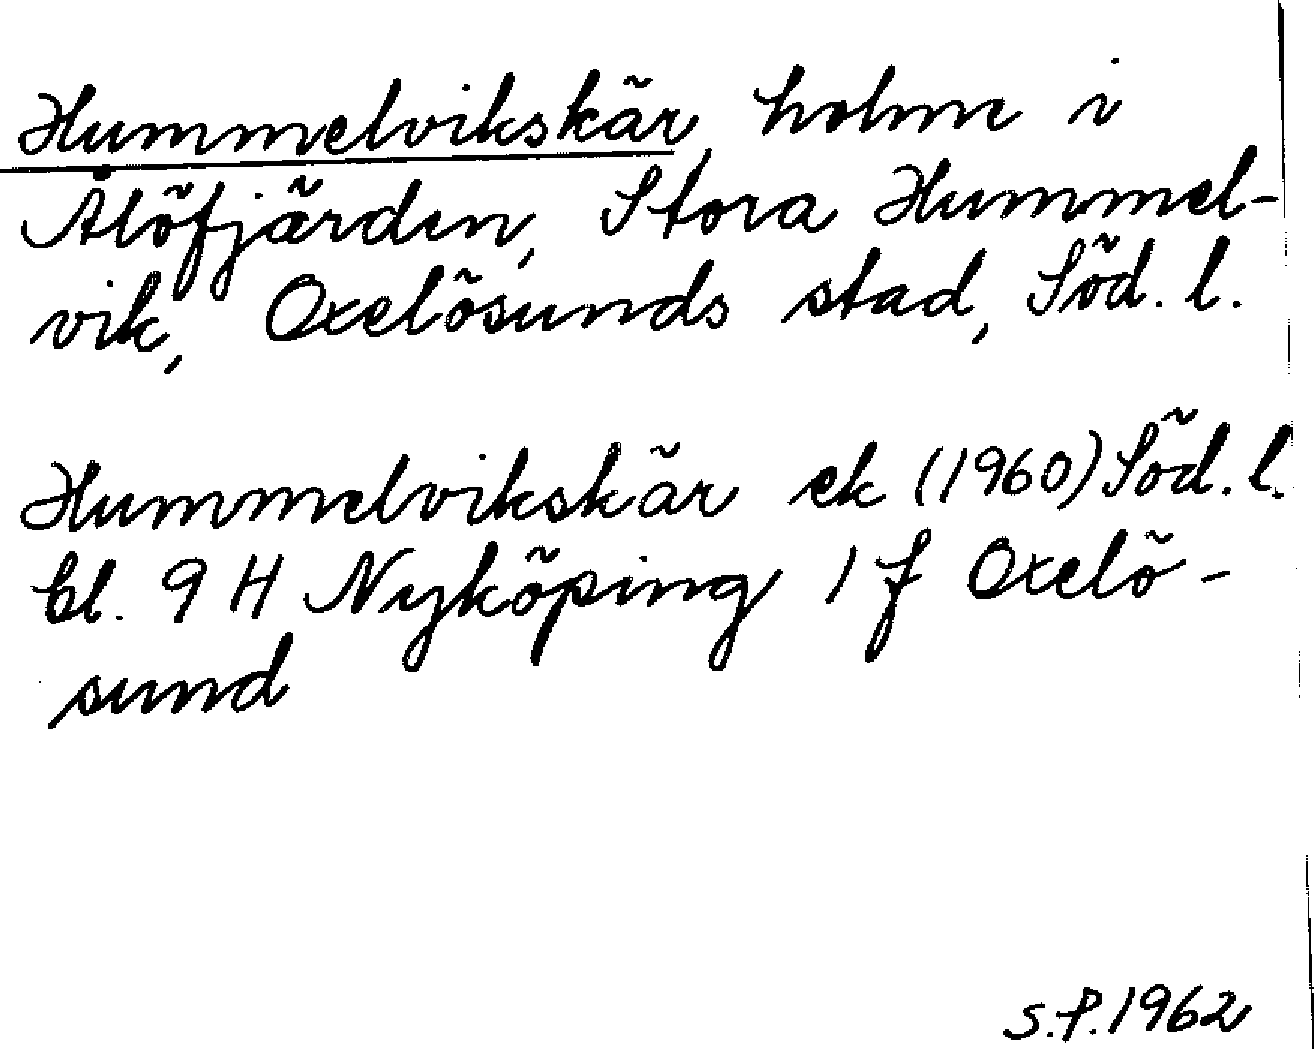 Hummelvikskär, holme i
Ålöfjärden, Stora Hummel-
vik, Oxelösunds stad, Söd. l.
Hummelvikskär ek (1960) Söd. l.
bl. 9 H Nyköping 1 f Oxelö-
sund
S.P. 1962